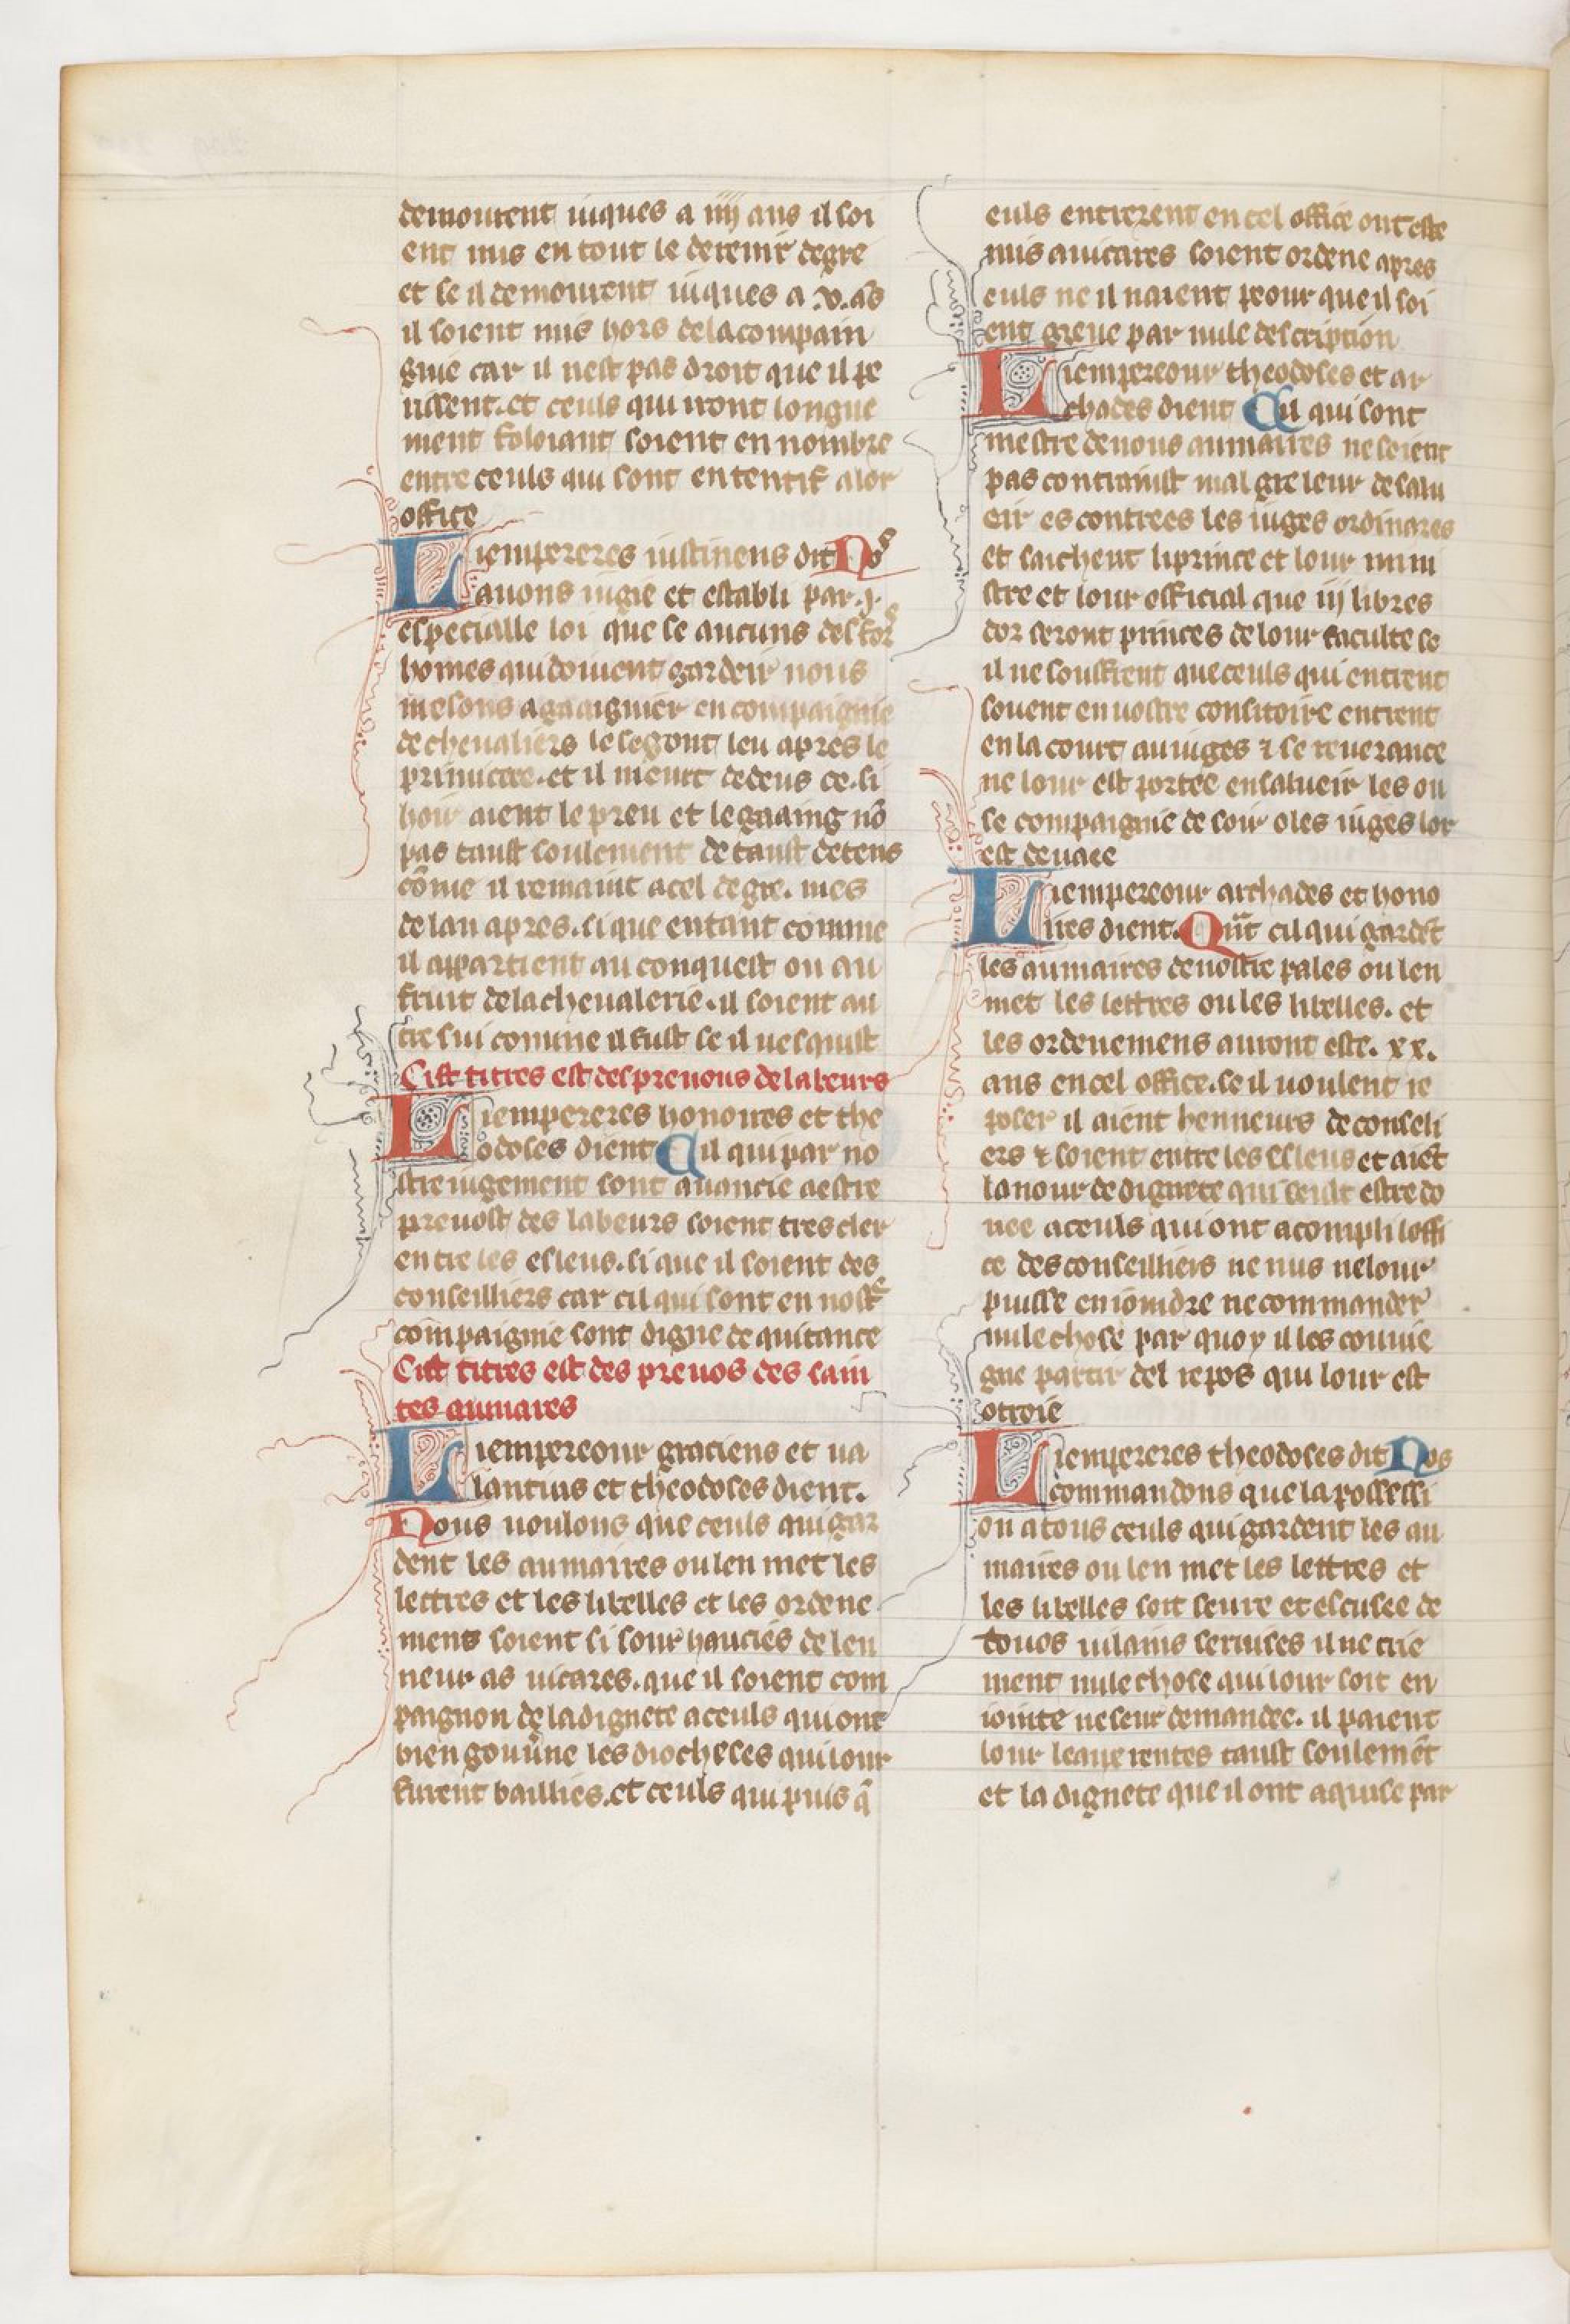 demourent iuques a iiij ans il soi
ent mis en tout le derenir degre
et se il demourent iuques a .v. ãs
il soient mis hors de la compain
gnie car il nest pas droit que il pe
uissent. et ceuls qui iront longue
ment foloiant soient en nombre
entre ceuls qui sont ententif a lor
office
Liempereres iustinens dit Nos
auons iugie et establi par .j.
especialle loi que se aucuns des for
homes qui doiuent gardeir nous
mesons a gaaignier en compaignie
de cheualiers le segont leu apres le
primicere. et il meurt dedens ce. si
hoir aient le preu et le gaaing nõ
pas tanst soulement de tanst de tens
cõme il remaint a cel degre. mes
de lan apres. si que en tant comme
il appartient au conquest ou au
fruit de la cheualerie. il soient au
tre sui comme il fust se il uesquist
Cist titres est des preuous de labeurs
Liempereres honoires et the
odoses dient Cil qui par no
stre iugement sont auancie a estre
preuost des labeurs soient tres cler
entre les esleus. si que il soient des
conseilliers car cil qui sont en nostre
compaignie sont digne de quitance
Cist titres est des preuos des sain
tes aumaires
Liempereour graciens et ua
lantins et theodoses dient.
Nous uoulons que ceuls qui gar
dent les aumaires ou len met les
lettres et les libelles et les ordene
mens soient si sour hauciés de len
neur as uicares. que il soient com
paignon de la dignete a ceuls qui ont
bien gouũne les diocheses qui lour
furent baillies. et ceuls qui puis q̃
euls entrerent en cel office ont este
mis auicaires soient ordene apres
euls ne il naient peour que il soi
ent greue par nule description
Liempereour theodoses et ar
chades dient Cil qui sont
mestre de nous aumaires ne soient
pas contrainst mal gre leur de salu
eir es contrees les iuges ordinares
et saichent li prince et lour mini
stre et lour official que iij libres
dor seront princes de lour faculte se
il ne souffrent que ceuls qui entrent
souent en uostre consitoire entrent
en la court au iuges ⁊ se reuerance
ne lour est portee en salueir les ou
se compaignie de soir o les iuges lor
est deuaee
Liempereour archades et hono
ires dient. Quãt cil qui gardẽt
les aumaires de nostre pales ou len
met les lettres ou les libelles. et
les ordenemens auront este. xx.
ans en cel office. se il uoulent re
poser il aient henneurs de conseli
ers ⁊ soient entre les esleus et aiẽt
lanour de dignete qui seult estre do
nee a ceuls qui ont acompli loffi
ce des conseilliers ne nus ne lour
puisse enioindre ne commander
nule chose par quoy il les couuie
gne partir del repos qui lour est
otroie
Liempereres theodoses dit Nos
commandons que la possessi
on a tous ceuls qui gardent les au
maires ou len met les lettres et
les libelles soit seure et escusee de
touos uilains seruises il ne crie
ment nule chose qui lour soit en
iointe ne leur demandee. il paient
lour leaue rentes tanst soulemẽt
et la dignete que il ont aquise par